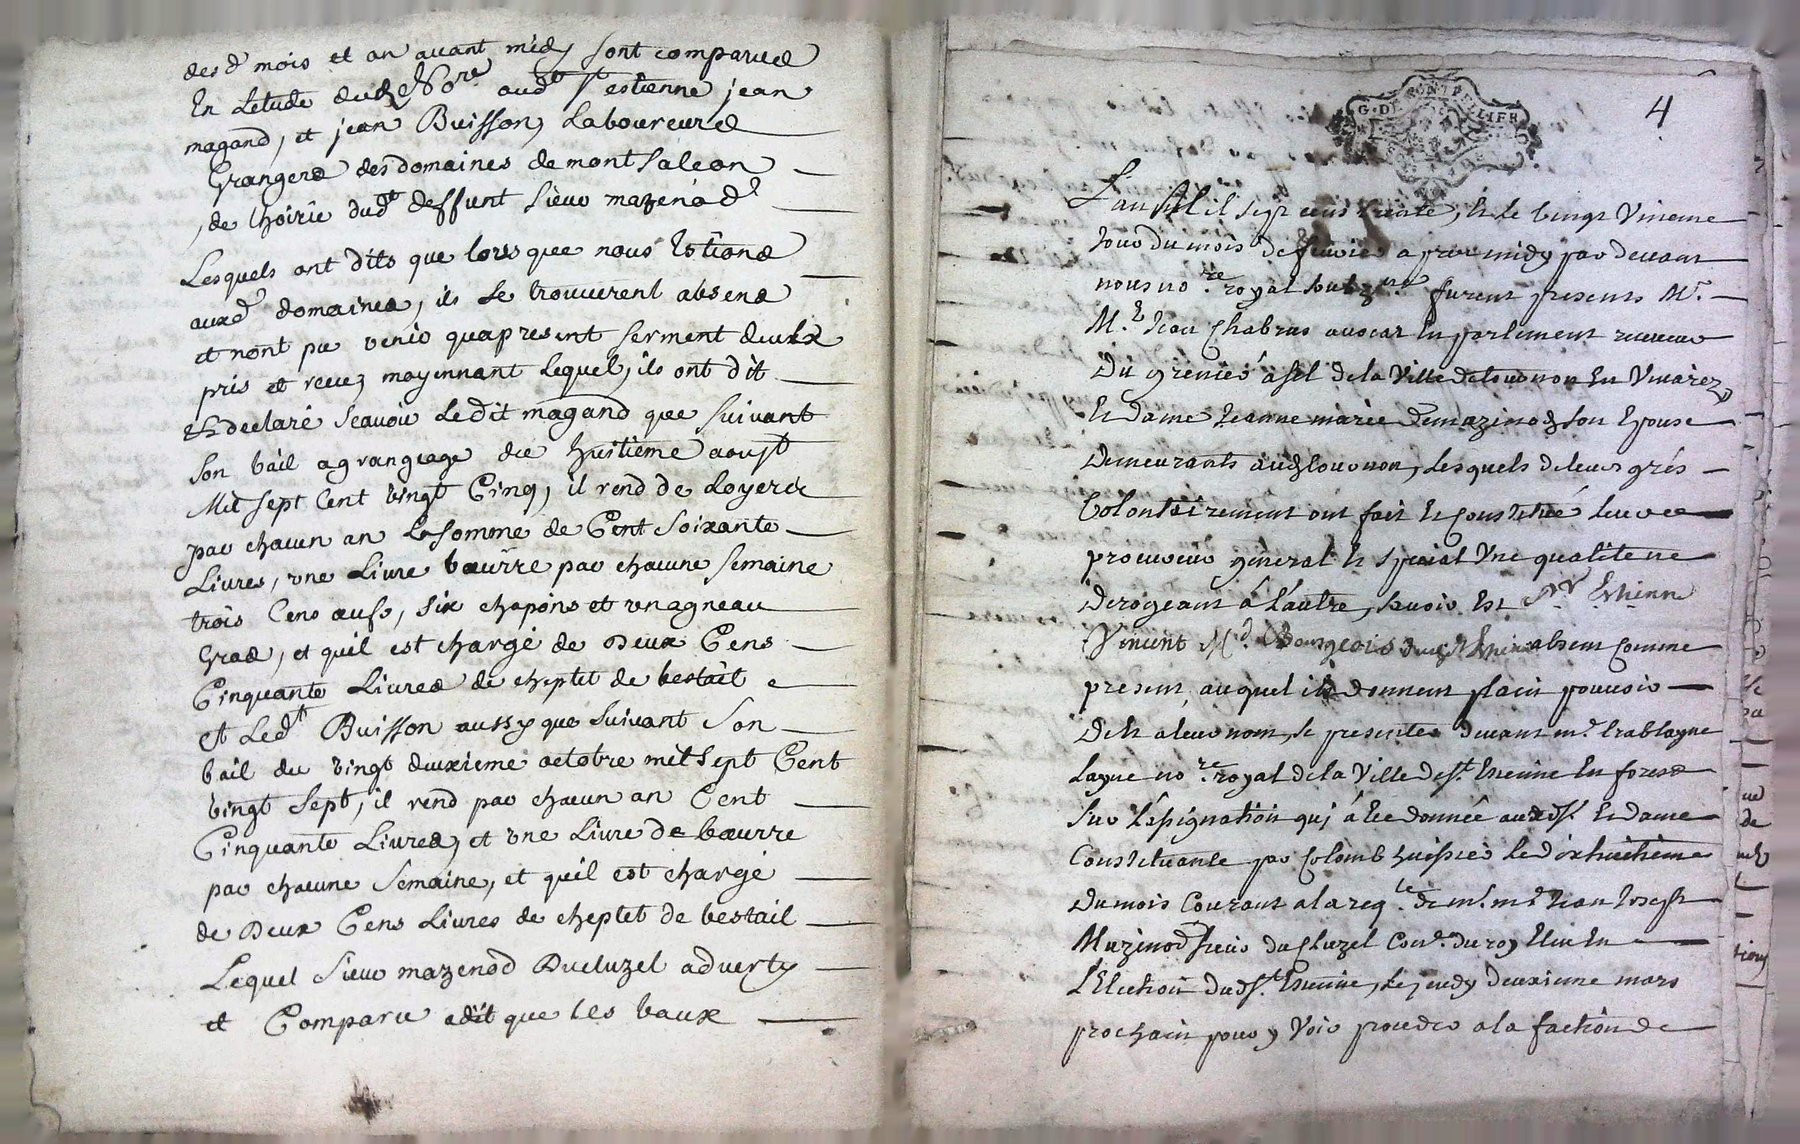 desd mois et an avant midy sont comparus
En Letude dud No.re aud.t S.t estienne jean
magand, et jean Buisson, Laboureurs
Grangers des domaines de montsaleon
de lhoirie dud.t deffunt Sieur mazenod
Lesquels ont dits que lors que nous Estions
auxd. domaines, ils se trouverent absens
et nont pu venir quapresent serment deulx
pris et receu moyennant Lequel, ils ont dit
et declaré scavoir Ledit magand que suivant
son bail agrangeage du huitieme aoust
Mil sept Cent vingt Cinq, il rend de Loyer
par chacun an La somme de Cent soixante
Livres, une Livre beurre par chacune semaine
trois Cens œufs, six chapons et un agneau
Gras, et quil est chargé de Deux Cens
Cinquante Livres de cheptel de bestail
et Led.t Buisson aussy que suivant son
bail du vingt deuxieme octobre mil sept Cent
vingt sept, il rend par chacun an Cent
Cinquante Livres, et une Livre de beurre
par chacune semaine, et quil est chargé
de Deux Cens Livres de cheptel de bestail
Lequel Sieur mazenod Ducluzel adverty
et Comparu a dit que les baux
G. DE MONTPELLIER
4
L'an Mil sept cens trente, Et le vingt Vnieme
Jour du mois de fevrier apres midy par devant
nous no.re royal soubz.né furent presents M.r
M.e Jean Chabrus avocat En parlement receveur
Du grenier á sel de la Ville de tournon En Vivarez
Et dame Jeanne marie Demazinod son Epouse
Demeurants aud. tournon, Lesquels de leurs grés
Volontairement ont fait Et Constitué leur
procureur general Et special Vne qualité ne
Derogeant á L'autre, scavoir Est S.r Ethienne
Vincent M.d Bourgeois dud. S.t Ethienne absent Comme
present, auquel ils donnent plain pouvoir
De Et a leur nom, se presenter devant m.e
no.re royal de la Ville de S.t Etienne En forest
Sur L'assignation qui á Ete donnée auxd. S.r Et Dame
Constituante par Colomb huissier Le dixhuitieme
Du mois Courant a la req.te de m.r m.e Jean Joseph
Mazinod Sieur du Cluzel Con.er du roy Elu En
L'Election dud. S.t Etienne, Le jeudy deuxieme mars
prochain pour y Voir proceder a la faction de